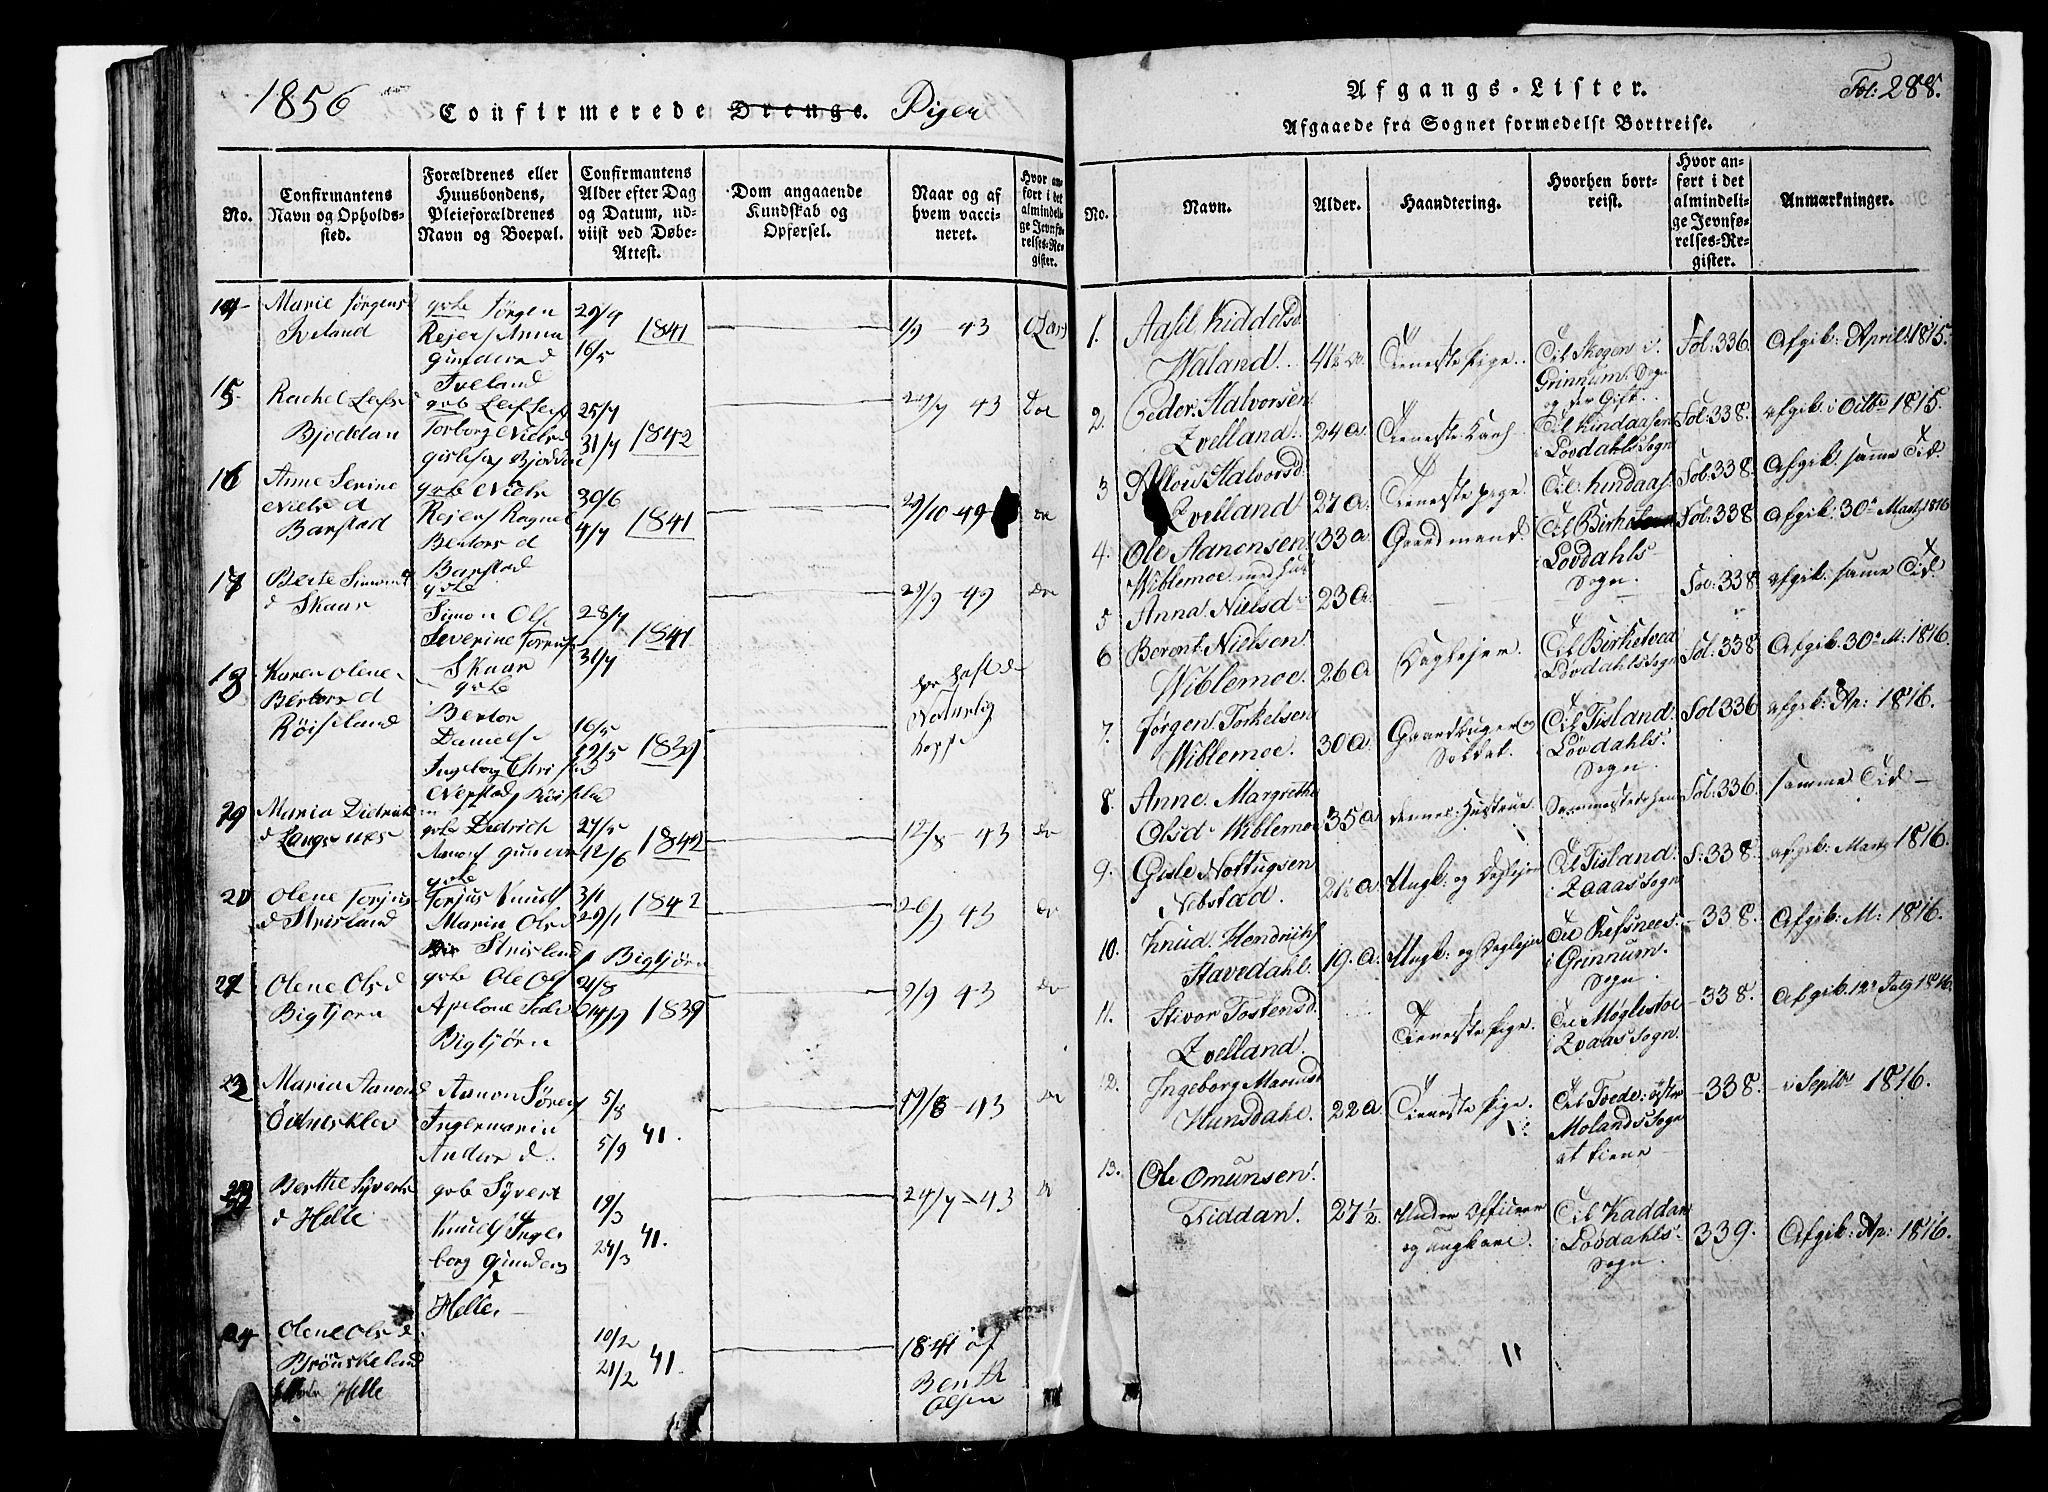 1856
Confirmerede Drenge. Piger
No.
Confirmantens
Navn og Opholds-
sted.
Forældrenes eller
Huusbondens,
Pleieforældrenes
Navn og Boepæl.
Confirmantens
Alder efter Dag
og Datum, ud-
viist ved Døbe-
Attest.
Dom angaaende
Kundskab og
Opførsel.
Naar og af
hvem vacci-
neret.
Hvor an-
ført i det
almindeli-
ge Jevnfø-
relses-Re-
gister.
14
Marie Jørgens
Iveland
gvb Jørgen
Rejers Anna
Gunders d
Iveland
29/4
16/5
1841
1/9 43
15
Rachel Leifs
gvb Leif
Torborg Niels d
25/7
31/7
1842
29/7 43
Do
16
Anne Serine
Niels d
Barstad
gvb Niels
Rejers Ragnel
Bentors d
Barstad
30/6
4/7
1841
29/10 49
Do
17
Berte Simons
d Skaar
gvb
Simon Ols
Severine
Skaar
28/7
31/7
1841
29/9 49
Do
18
Karen Olene
Bentors d
Røiseland
gvb
Bentor
Daniels
Ingeborg
16/5
19/5
har haft de
Naturlig
Kopper
Maria Didrik
d Langenes
gvb Didrich
27/5
12/6
1842
12/8 - 43
Do
20
Olene Torjus
d Strisland
gvb
Torjus Knuds
Maria Ols d
Strisland
3/1
29/1
1842
26/9 43
Do
Bigtjörn
Olene Ols d
Bigtjørn
gvb Ole Ols
Bigtjörn
21/8
14/9
1839
9/9 43
Do
Maria Aanon d
Aanon Sörens
Ingermarin
Anders d
5/8
5/9
41.
19/8 - 43
Do
Berthe Syverts
d Helle
gvb Syvert
Knuds Inge-
borg Gunders
d
Helle
19/3
24/3
41.
24/7 - 43
D
24
Olene Ols d
Helle
10/2
21/2
41.
1841 af
Benth
Olsen
Afgangs-Lister.
Fol: 288.
Afgaaede fra Sognet formedelst Bortreise.
No.
Navn.
Alder.
Haandtering.
Hvorhen bort-
reist.
Hvor an-
ført i det
almindeli-
ge Jevnfø-
relses-Re-
gister.
Anmærkninger.
1.
Aasil Kiddelsd
Waland.
Tieneste Pige.
Til Skogen i
Grinnum Sogn
og der Gift.
Fol: 336.
Afgik: April 1815.
2.
Peder Halvorsen
Zvelland.
24 a.
Tieneste Karl
Til Kindaasen
i Lovdahls Sogn
Fol: 338.
afgik i Octbr 1815.
3
Halvorsd
Zvelland
27 a.
Tieneste pige.
Til Kindaas
Fol: 338.
Afgik: samme Tid.
4.
Ole Aanonsen
Wiblemoe med
33 a.
Gaardmand
i Lovdahls
Sogn.
Fol: 338
Afgik: 30te Martz 1816
5
Anna Nielsd
23 a.
Fol: 338
afgik: samme Tid.
6
Berent Nielsen
Wiblemoe.
26 a
Daglejer.
Til Birketved
i Lovdahls Sogn
Fol: 338
Afgik: 30te M: 1816
7.
Jørgen Torkelsen
Wiblemoe.
30 a.
Gaardbruger og
Soldat.
Til Tisland
i Lovdahls
Sogn
Fol 336
afgik: Ap: 1816.
8.
Anne Margrethe
Olsd Wiblemoe
35 a.
dennes Hustrue
Sammestedshen
Fol: 336
samme Tid
9.
Gisle Nottugsen
Nebstad.
Ungk: og Daglejer
Til Tisland
i Zaaas Sogn
F: 338.
afgik: Martz 1816.
10.
Knud Hendrichs
Stavedahl.
19. a.
Ungk: og Daglejer
Til Refsnees
i Grinnum
Sogn
338.
Afgik: M: 1816.
11.
Stivor Tostensd
Zvelland.
Tieneste Pige.
Til Møglestoe
i Zvaas Sogn
338.
Afgik: 12te July 1816.
12.
Ingeborg
Hunsdahl.
22 a.
Tieneste Pige.
Til Tvede i øster
Molands Sogn
at tiene
338.
i Septbr 1816.
13.
Ole Omunsen
Fiddan.
27 1/2
Under Officeer
og ungkarl.
Til Haddan
i Lovdahls
Sogn.
339.
Afgik: Ap: 1816.